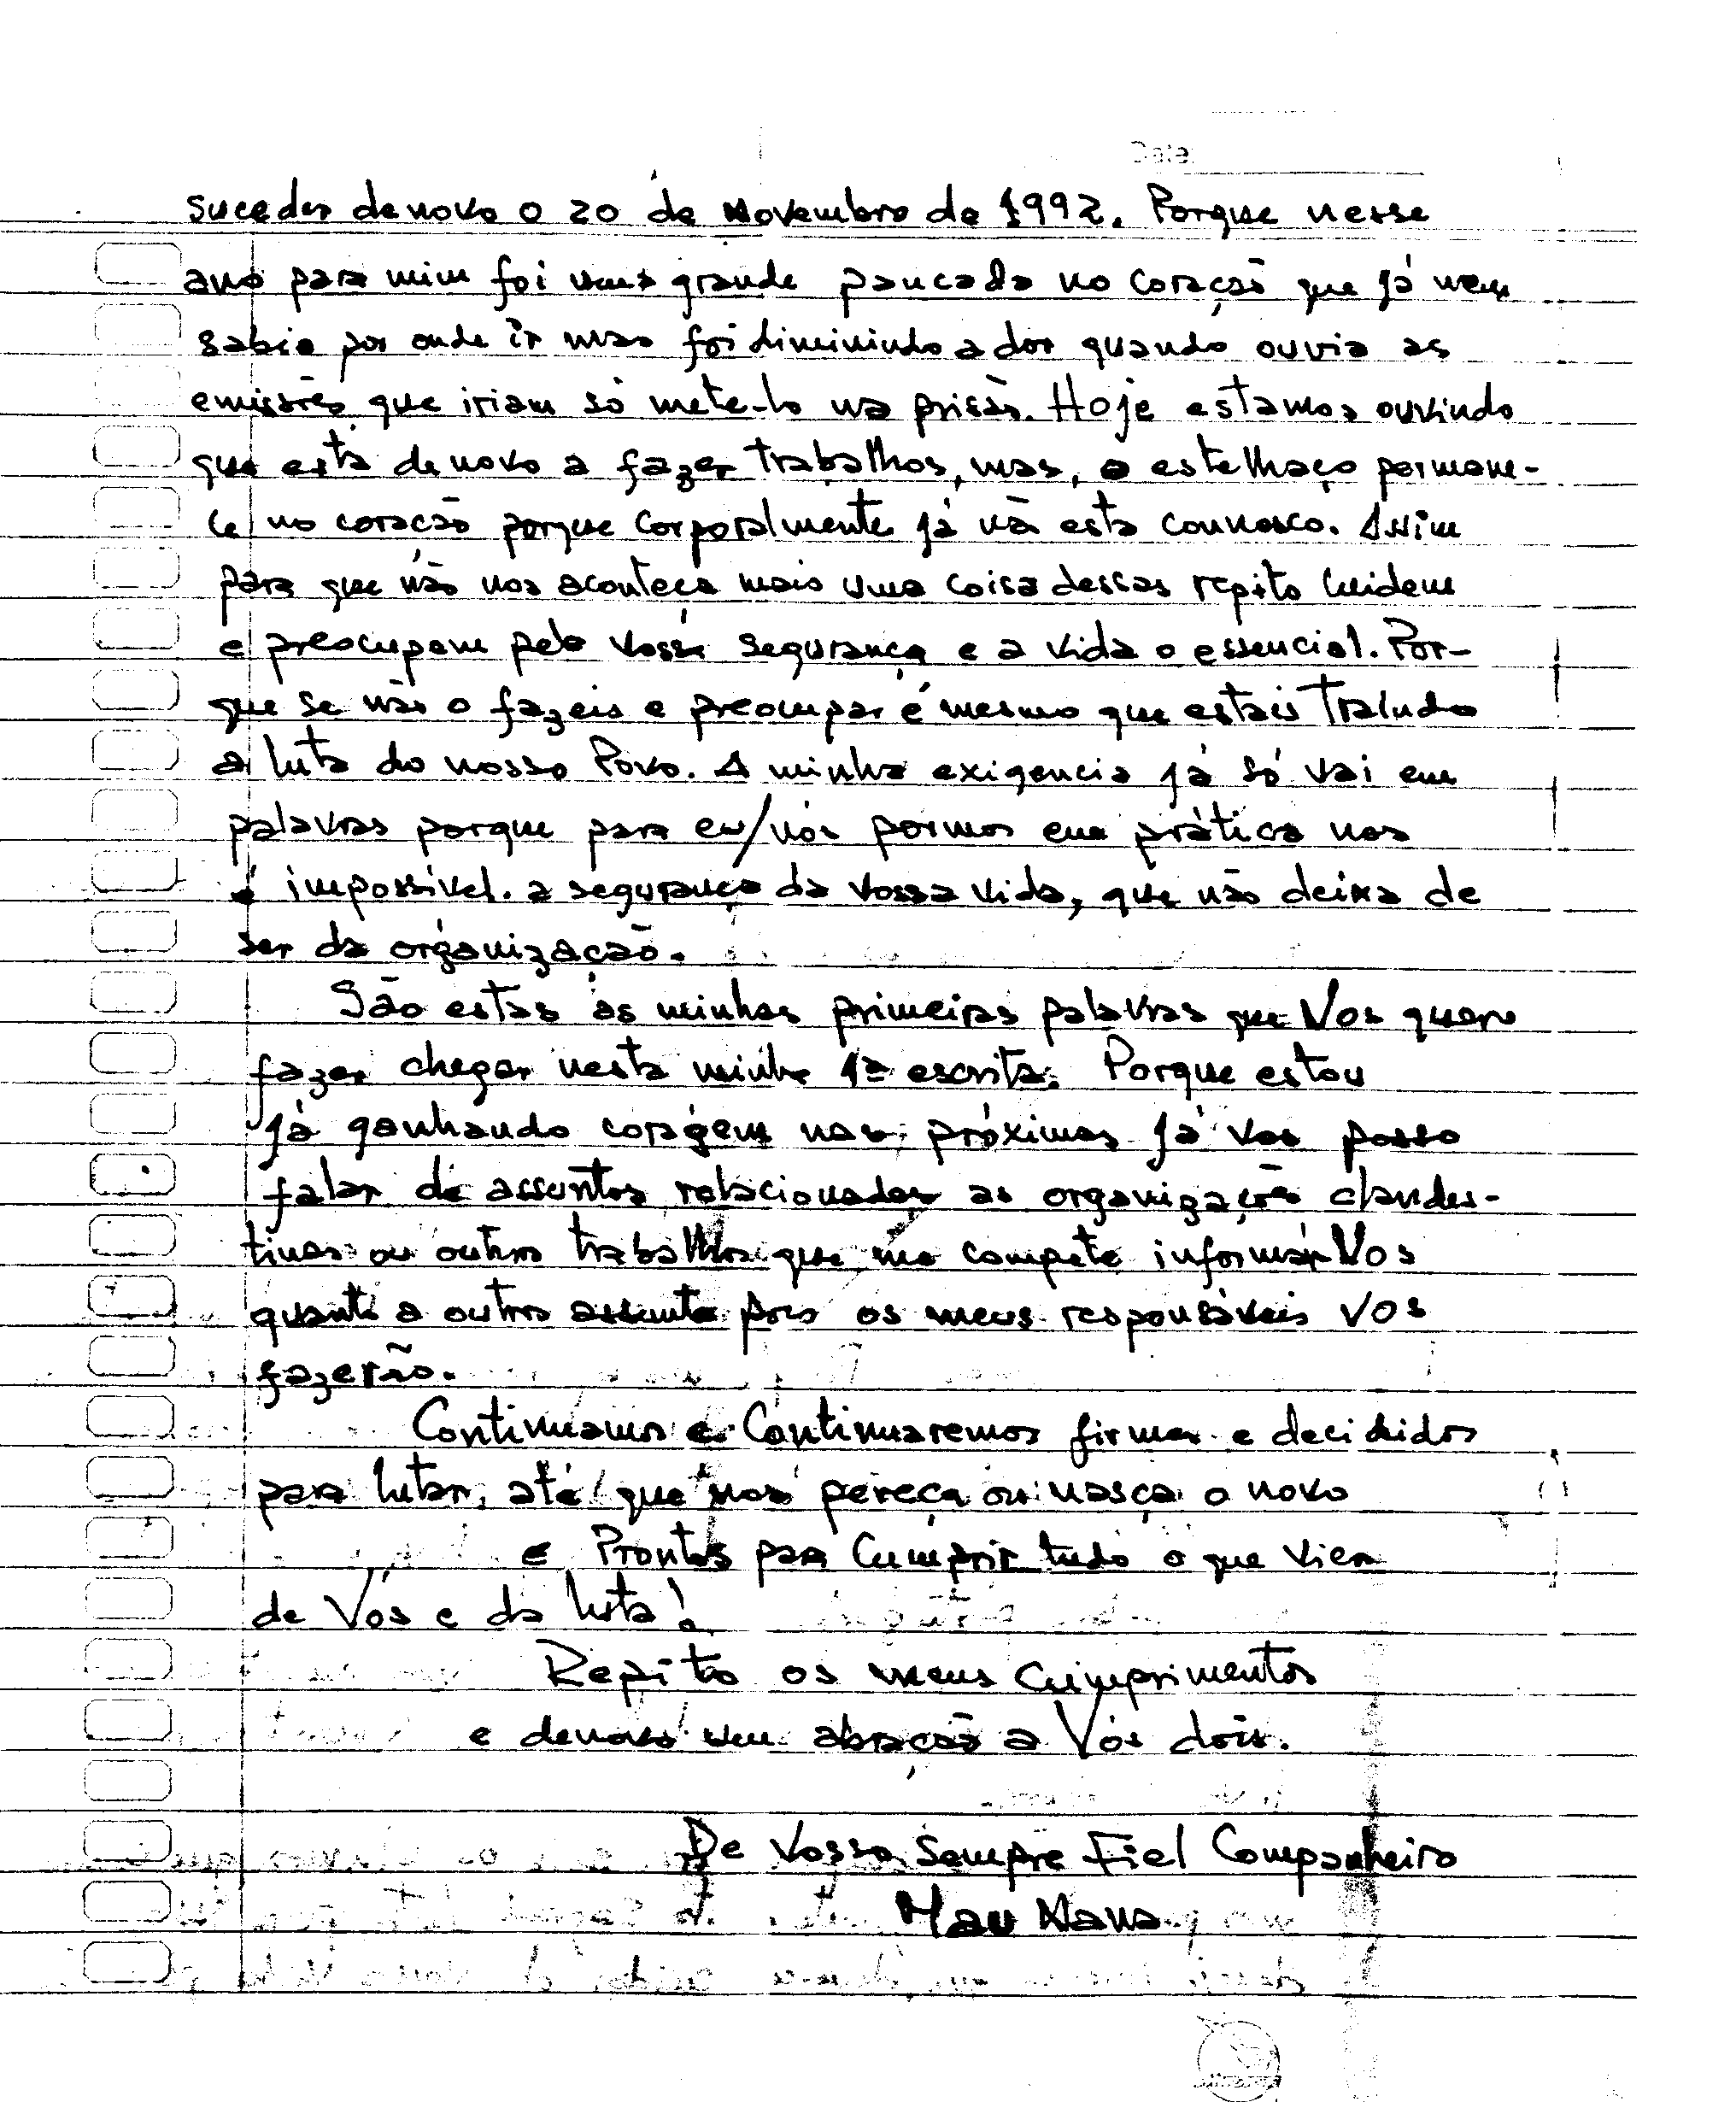 Date:
suceder denovo o 20 de Novembro de 1992. Porque nesse
ano para mim foi uma grande pancada no coração que já nem
sabia por onde ir mas foi diminindo a dor quando ouvia as
emissões que iriam só mete-lo na prisão. Hoje estamos ouvindo
que está denovo a fazer trabalhos, mas, o estelhaço permane-
ce no coração porque corporalmente já não esta connosco. Assim
para que não nos aconteça mais uma coisa dessas repito cuidem
e preocupam pela vossa segurança e a vida o essencial. Por-
que se não o fazeis e preocupar é mesmo que estais traindo
a luta do nosso Povo. A minha exigencia já só vai em
palavras porque para eu/nós pormos em prática nos
é impossível. a segurança da vossa vida, que não deixa de
ser da organização.
São estas as minhas primeiras palavras que Vos quero
fazer chegar nesta minha 1ª escrita. Porque estou
já ganhando coragem nas próximas já vos posso
falar de assuntos relacionados as organizações clandes-
tinas ou outros trabalhos que me compete informar Vos
quanto a outros assunto pois os meus responsáveis VOS
fazerão.
Continuamos e Continuaremos firmes e decididos
para lutar, até que nos pereça ou nasça o novo
e Prontos para Cumprir tudo o que vier
de Vós e da luta!
Repito os meus cumprimentos
e denovo um abração a Vós dois.
De Vosso Sempre Fiel Companheiro
Mau Nana